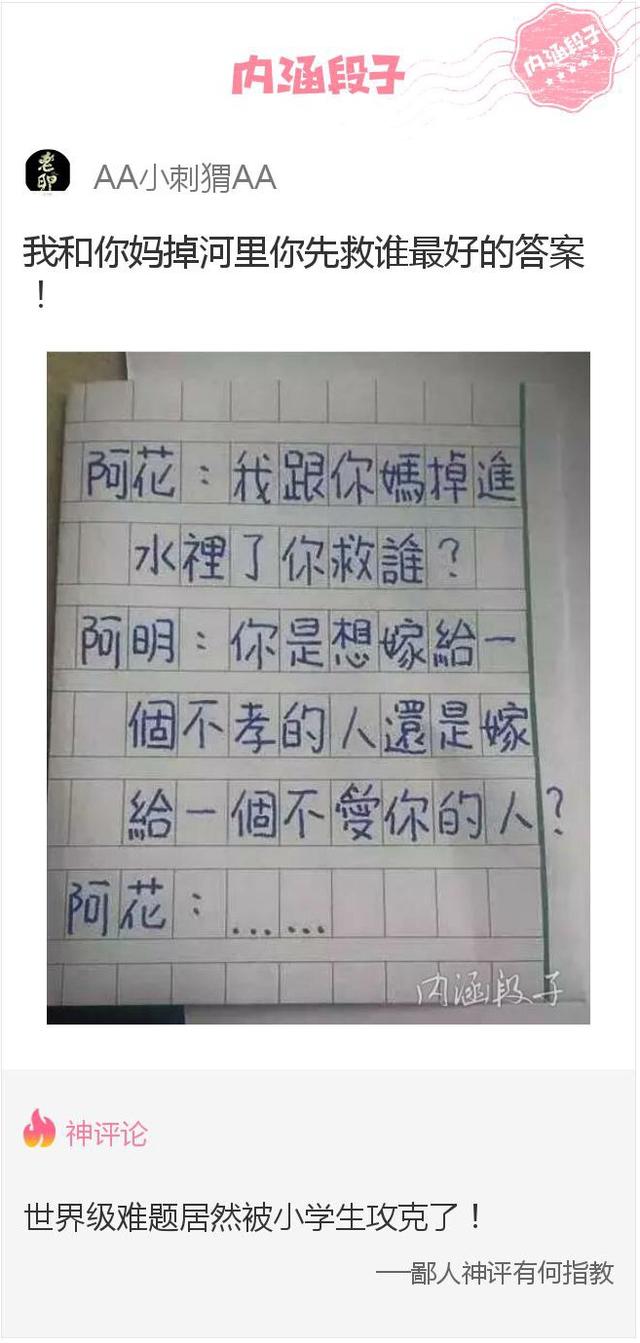 内涵段子
内涵段子
老卵
AA小刺猬AA
我和你妈掉河里你先救谁最好的答案
！
阿花：我跟你媽掉進
水裡了你救誰？
阿明：你是想嫁給一
個不孝的人還是嫁
給一個不愛你的人？
阿花：……
内涵段子
神评论
世界级难题居然被小学生攻克了！
──鄙人神评有何指教